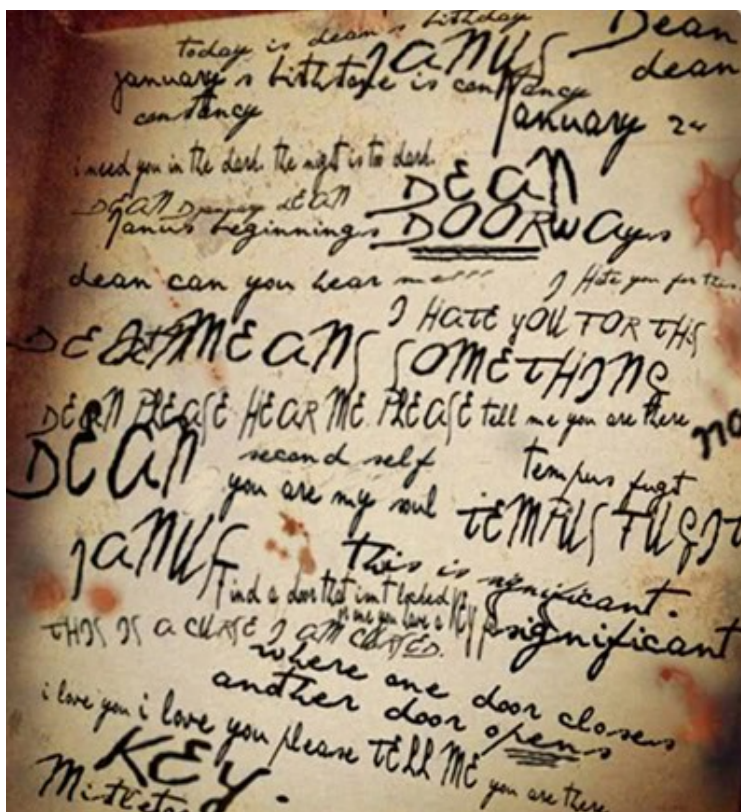 today is dean's birthday
JANUS
Dean
dean
january's birthstone is constancy
constancy
January 24
i need you in the dark. the night is too dark.
DEAN
DEAN January DEAN
DOORWays
Janus beginnings
dean can you hear me
I Hate you for this.
I HATE YOU FOR THIS
DEATH MEANS SOMETHING
DEAN PLEASE HEAR ME. PLEASE tell me you are there
no
DEAN
second self
you are my soul
tempus fugt
TEMPUS FUGIT
JANUS
this is significant.
significant
Find a door that isn't locked
or one you have a KEY for
THIS IS A CURSE I AM CURSED.
where one door closes
another door opens
i love you i love you please TELL ME you are there
KEY.